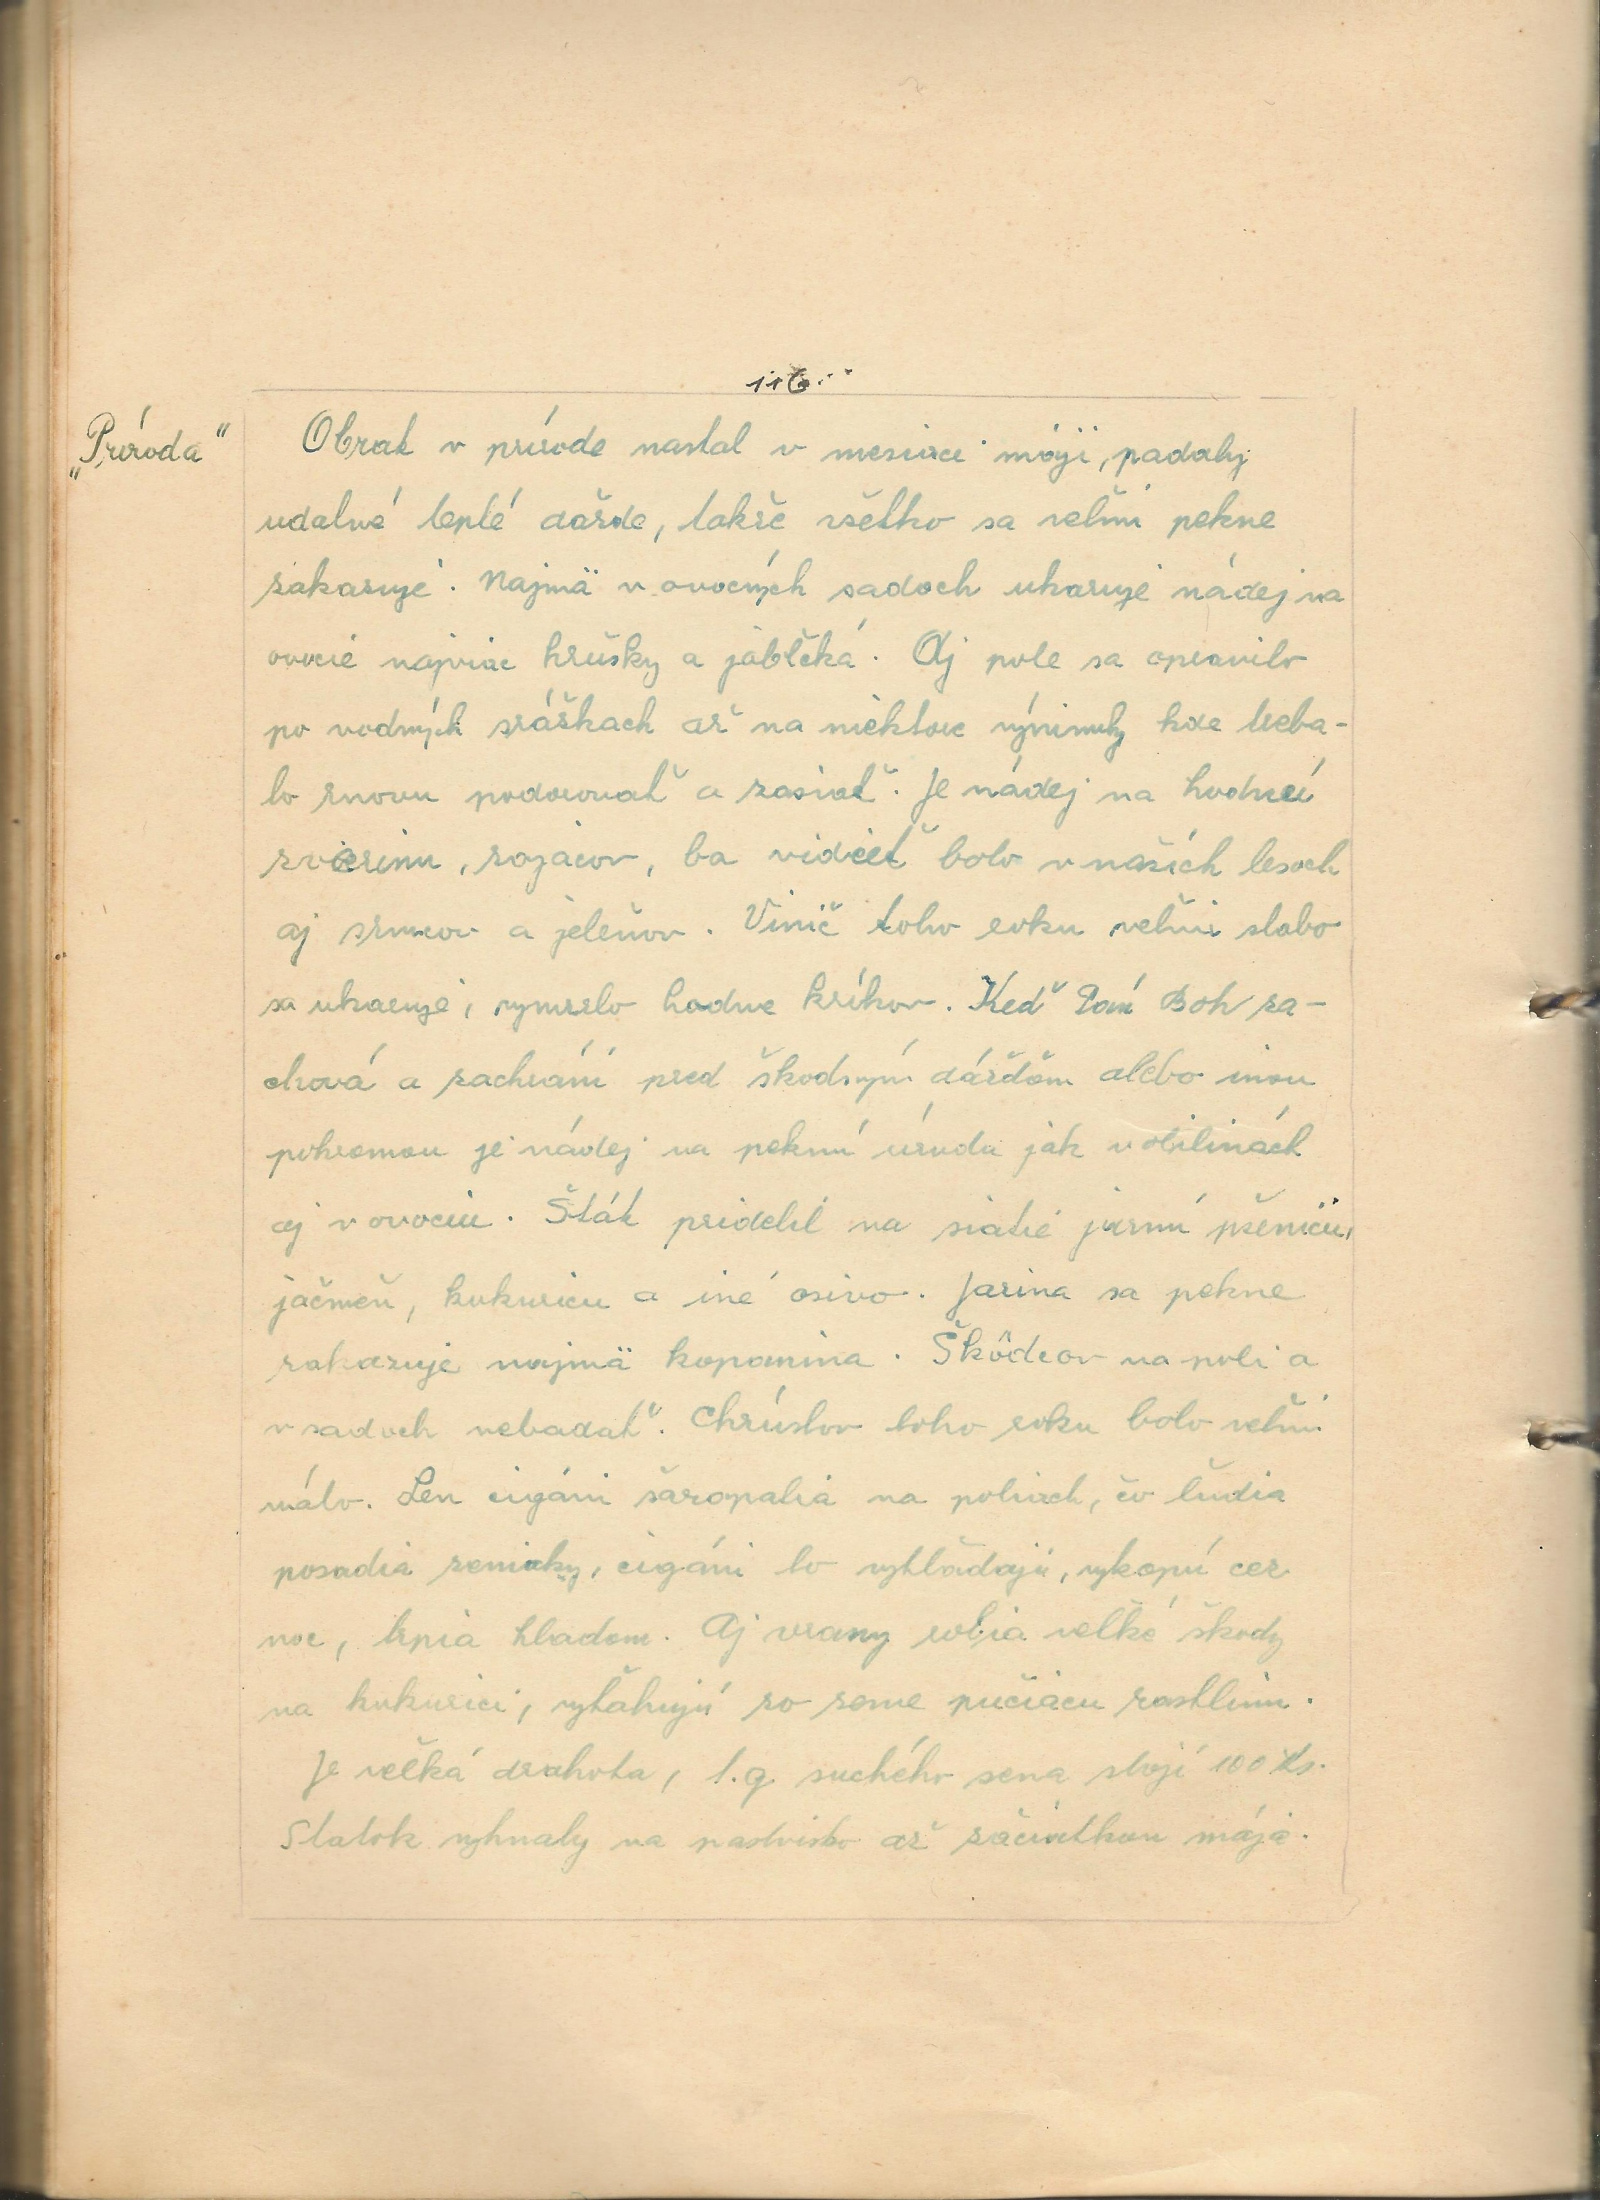 116.
„Príroda“
Obrat v prírode nastal v mesiaci máji, padaly
udatné teplé dažde, takže všetko sa veľmi pekne
zakazuje. Najmä v ovocných sadoch ukazuje nádej na
ovocie najviac hrušky a jabĺčká. Aj pole sa opravilo
po vodných srážkach až na niektoré výnimky kde treba-
lo znovu podorovať a zasiať. Je nádej na hodnú
zverinu, zajacov, ba vidieť bolo v našich lesoch
aj srncov a jeleňov. Vinič toho roku veľmi slabo
sa ukazuje, vymrzlo hodne kríkov. Keď Pán Boh za-
chová a zachráni pred škodným dážďom alebo inou
pohromou je nádej na peknú úrodu jak v obilinách
aj v ovocia. Štát pridelil na siatie jarnú pšenicu,
jačmeň, kukuricu a iné osivo. Jarina sa pekne
zakazuje najmä kopanina. Škôdcov na poli a
v sadoch nebadať. Chrústov toho roku bolo veľmi
málo. Len cigáni šarapatia na poliach, čo ľudia
posadia zemiaky, cigáni to vyhľadajú, vykopú cez
noc, trpia hladom. Aj vrany robia veľké škody
na kukurici, vyťahujú zo zeme pučiacu rastlinu.
Je veľká drahota, 1.q suchého sena stojí 100 Ks.
Statok vyhnaly na pastvisko až začiatkom mája.